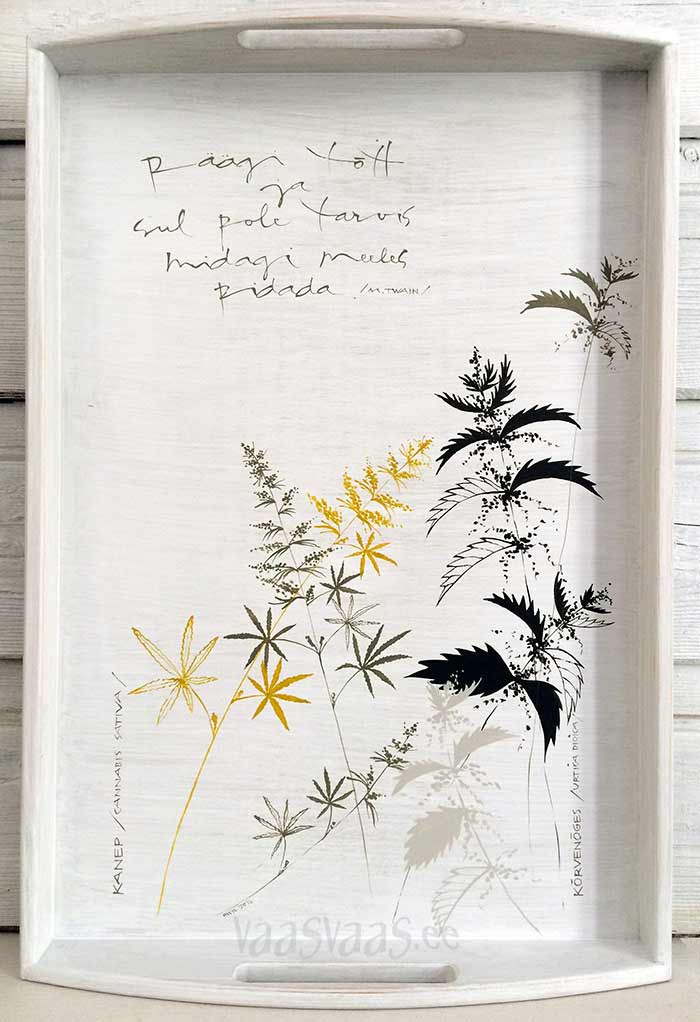 Räägi tõtt
ja
sul pole tarvis
midagi meeles
pidada. /M. TWAIN/
KANEP /CANNABIS SATIVA/
KÕRVENÕGES /URTIKA DIOICA/
vaasvaas.ee